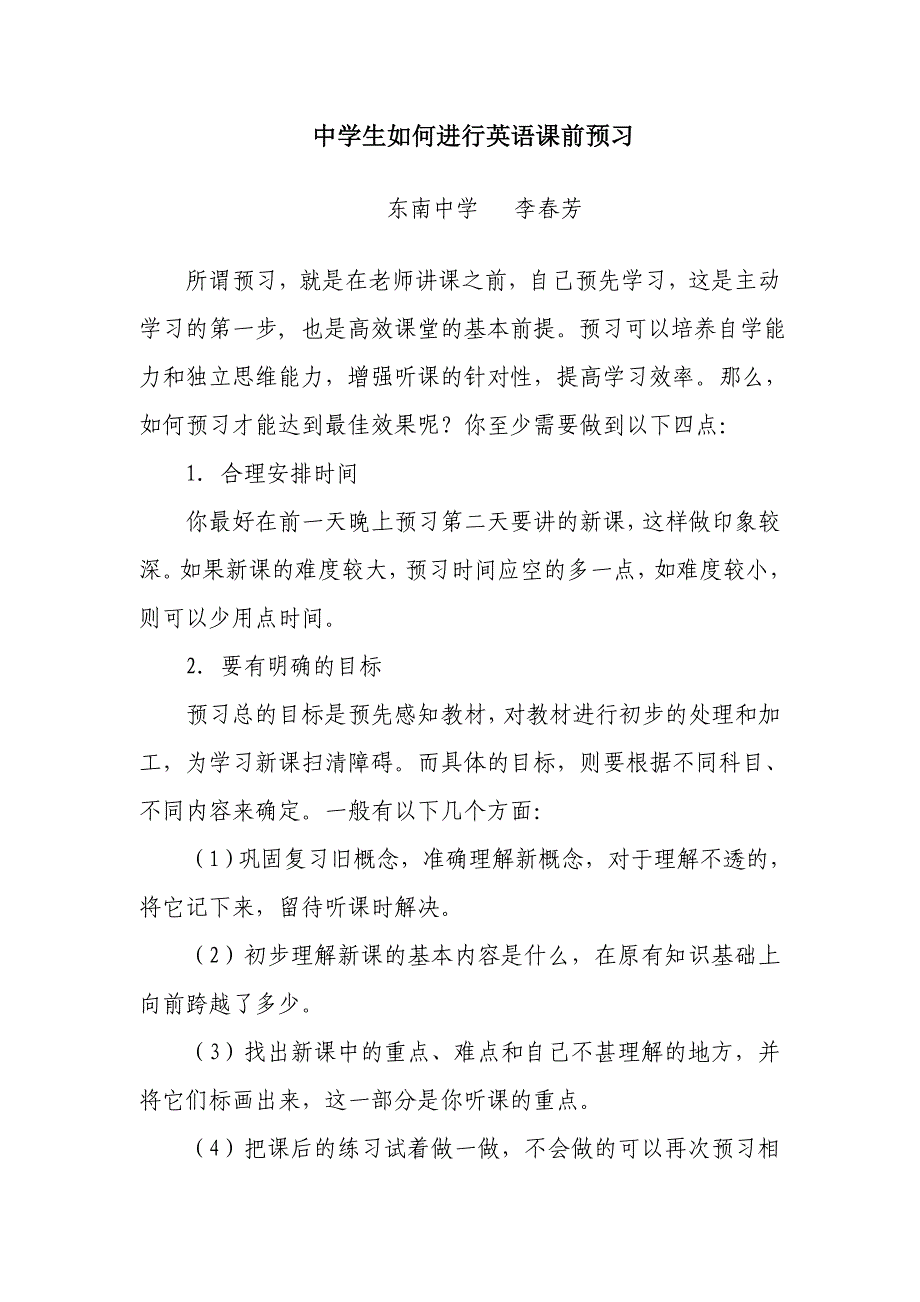 中学生如何进行英语课前预习
东南中学 李春芳
所谓预习，就是在老师讲课之前，自己预先学习，这是主动
学习的第一步，也是高效课堂的基本前提。预习可以培养自学能
力和独立思维能力，增强听课的针对性，提高学习效率。那么，
如何预习才能达到最佳效果呢？你至少需要做到以下四点：
1. 合理安排时间
你最好在前一天晚上预习第二天要讲的新课，这样做印象较
深。如果新课的难度较大，预习时间应空的多一点，如难度较小，
则可以少用点时间。
2. 要有明确的目标
预习总的目标是预先感知教材，对教材进行初步的处理和加
工，为学习新课扫清障碍。而具体的目标，则要根据不同科目、
不同内容来确定。一般有以下几个方面：
（1）巩固复习旧概念，准确理解新概念，对于理解不透的，
将它记下来，留待听课时解决。
（2）初步理解新课的基本内容是什么，在原有知识基础上
向前跨越了多少。
（3）找出新课中的重点、难点和自己不甚理解的地方，并
将它们标画出来，这一部分是你听课的重点。
（4）把课后的练习试着做一做，不会做的可以再次预习相